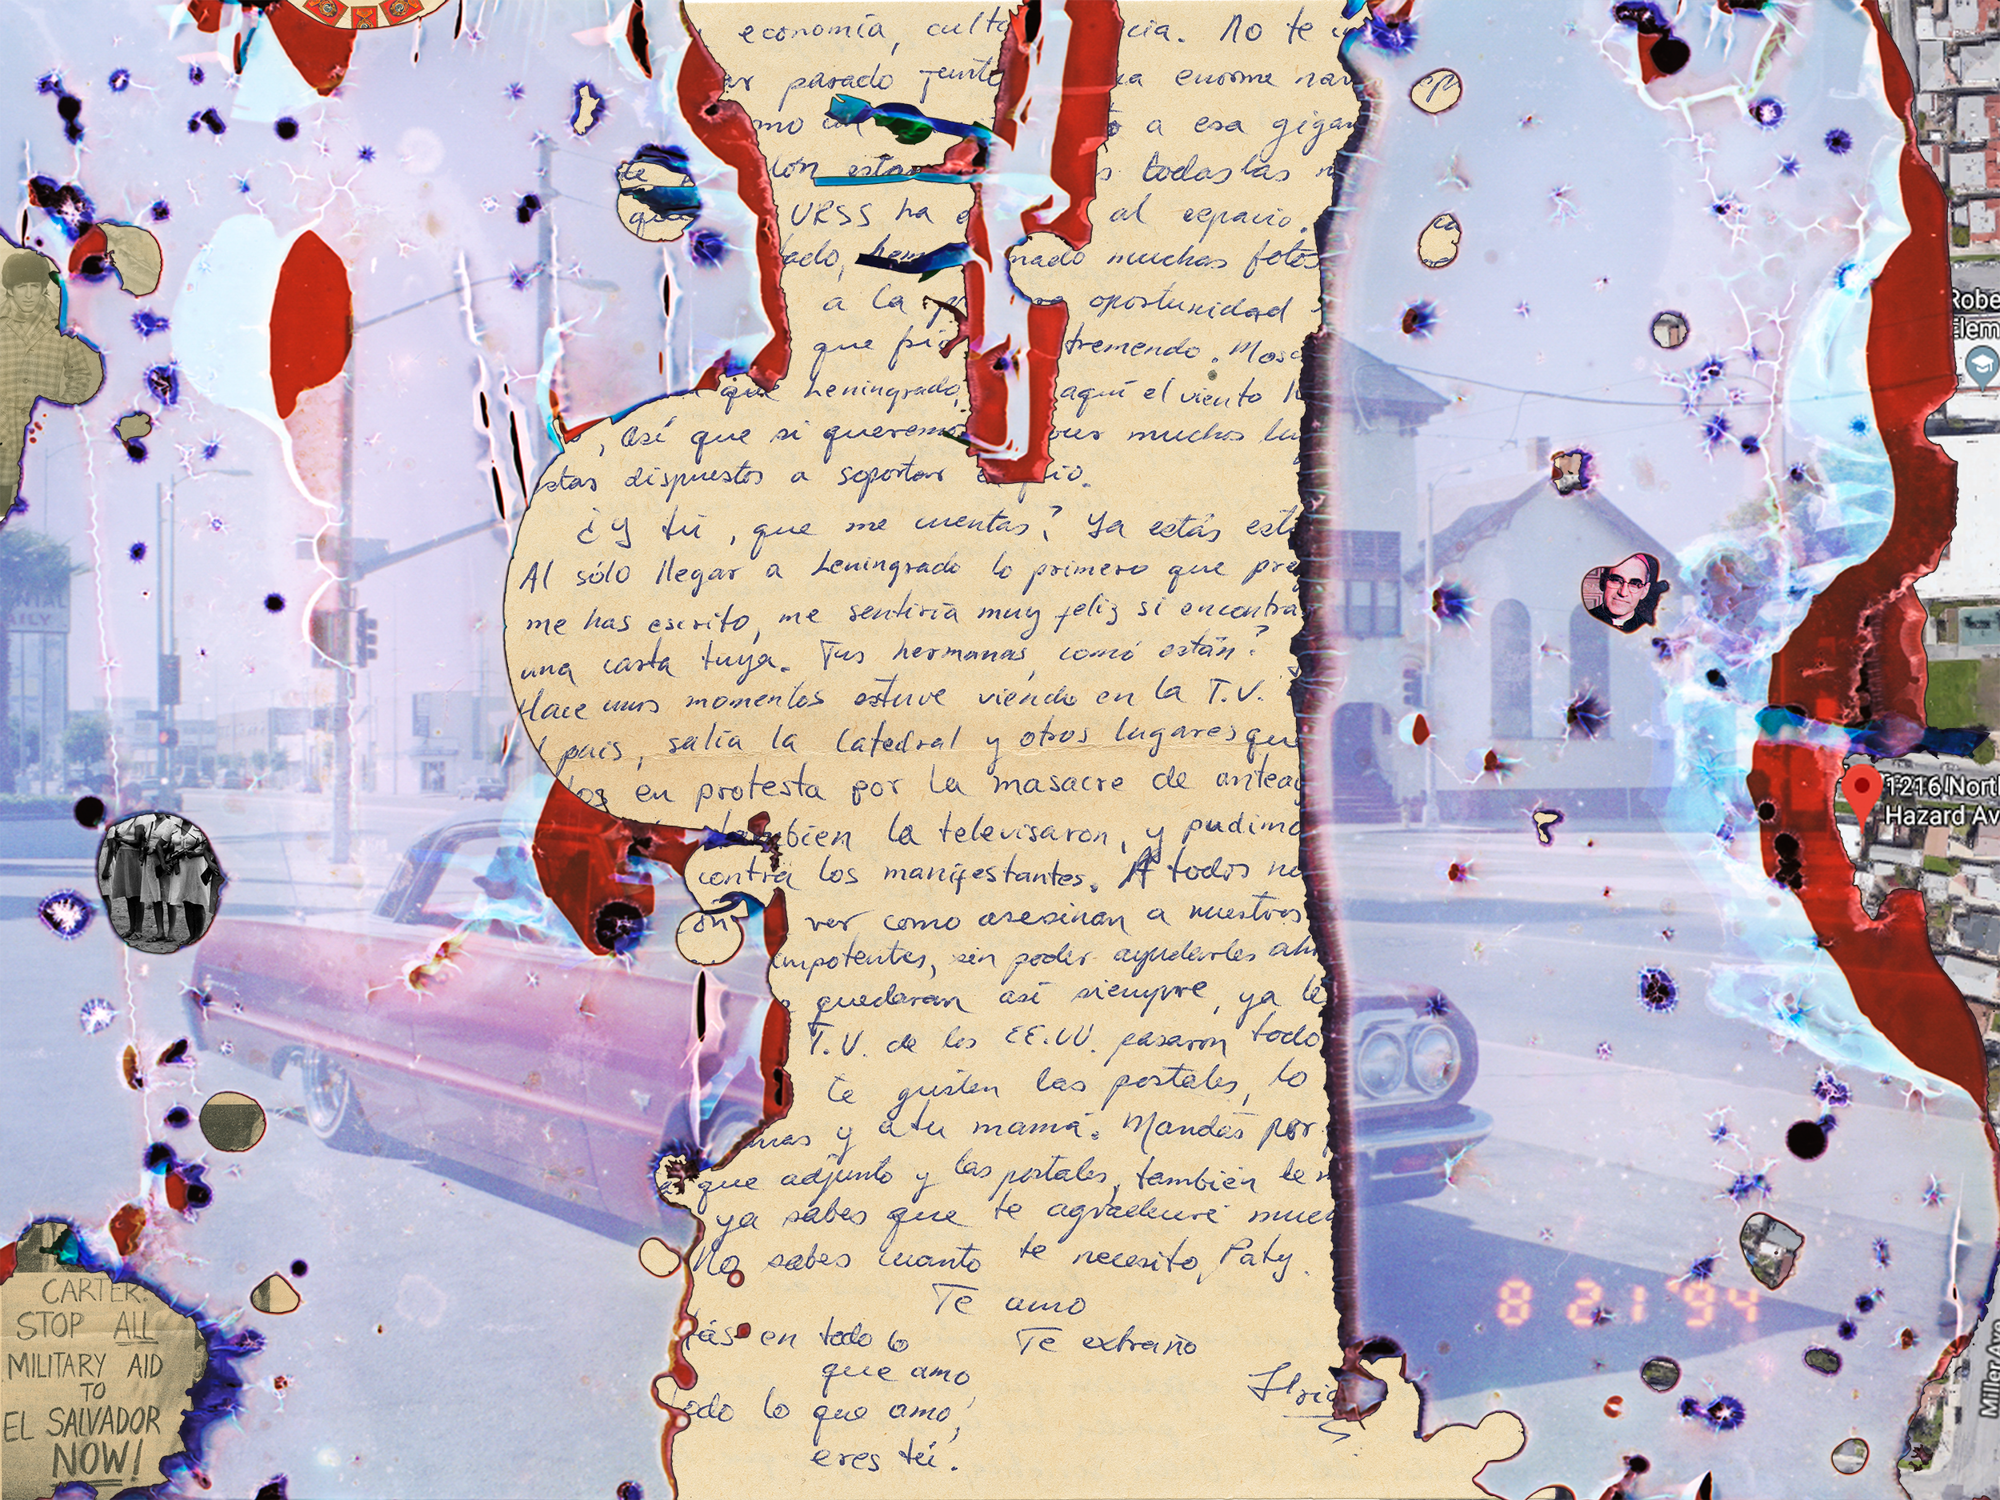 economía, cult cia. No te i
parado junto a enorme na
mo un a esa gigan
ión estan s todas las n
de
que
URSS ha e al espacio.
tado, hem mado muchas fotos
a la p ra oportunidad
que frío tremendo. Mosc
que Leningrado, aquí el viento h
, así que si queremos muchos lu
estas dispuestos a soportar e frío.
¿Y tú, que me cuentas? Ya estás est
Al sólo llegar a Leningrado lo primero que pre
me has escrito, me sentiría muy feliz si encontra
una carta tuya. Tus hermanas, como están?
Hace unos momentos estuve viendo en la T.V.
l país, salía la Catedral y otros lugares que
dos en protesta por la masacre de antea
también la televisaron, y pudimo
contra los manifestantes. A todos no
on ver como asesinan a nuestros
impotentes, sin poder ayudarles ah
quedaran así siempre, ya le
T.V. de los EE.UU. pasaron todo
te gusten las postales, lo
mas y a tu mamá. Mandás por
que adjunto y las postales, también te m
ya sabes que te agradeceré much
No sabes cuanto te necesito, Paty.
Te amo
tás en todo lo Te extraño
que amo,
todo lo que amo,
eres tú.
ep
ca
Robe
Elem
1216 North
Hazard Av
Miller Ave
8 21 '94
CARTER:
STOP ALL
MILITARY AID
TO
EL SALVADOR
NOW!